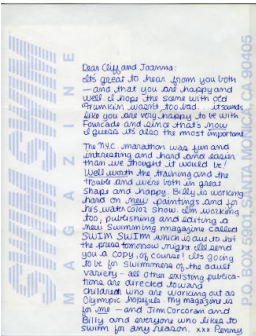 Dear Cliff and Joanna:
It's great to hear from you both
— and that you are happy and
well. I hope the same with old
Grumkin wasn't too bad. It sounds
like you are very happy to be with
Fourcade and since that's now
I guess its also the most important.
The N.Y.C. marathon was fun and
interesting and hard and easier
than we thought it would be!
Well worth the training and the
trouble and we're both in great
shape and happy. Billy is working
hard on new paintings and for
his watercolor show. I'm working
too, publishing and editing a
new swimming magazine called
SWIM SWIM which is due to hit
the press tomorrow night. I'll send
you a copy, of course! It's going
to be for swimmers of the adult
variety — all other existing publica-
tions are directed toward
children who are working out as
Olympic hopefuls. My magazine is
for me — and Jim Corcoran and
Billy and everyone who likes to
swim for any reason. xxx Penny
SWIM SWIM
MAGAZINE
SANTA MONICA, CA 90405